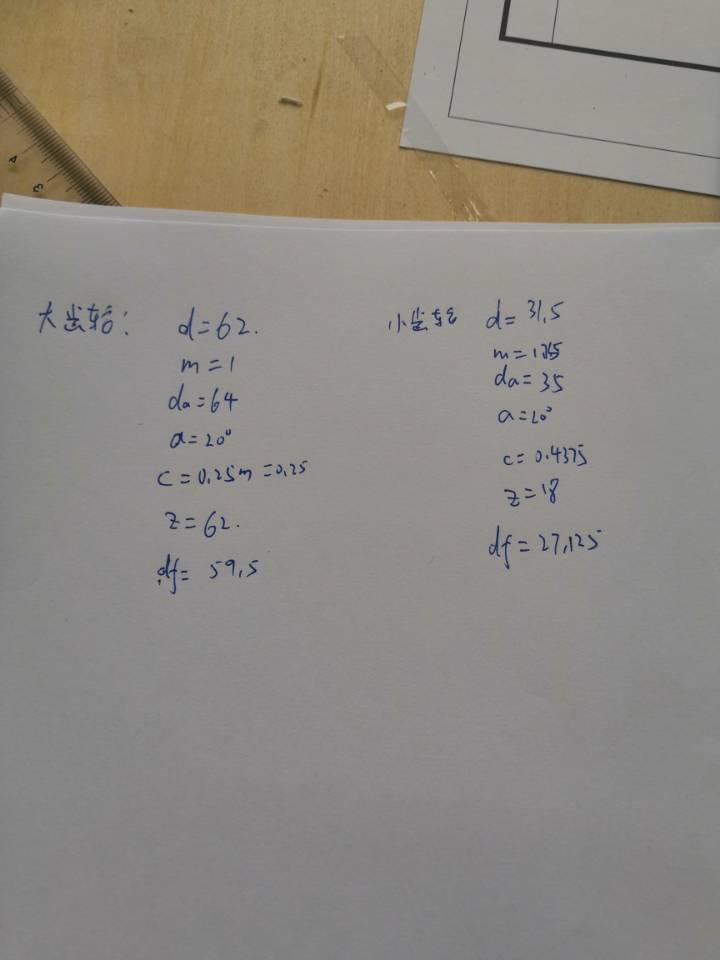 大齿轮：
d=62.
m=1
da=64
a=20°
c=0.25m=0.25
z=62.
df=59.5
小齿轮
d=31.5
da=35
a=20°
c=0.4375
z=18
df=27.125